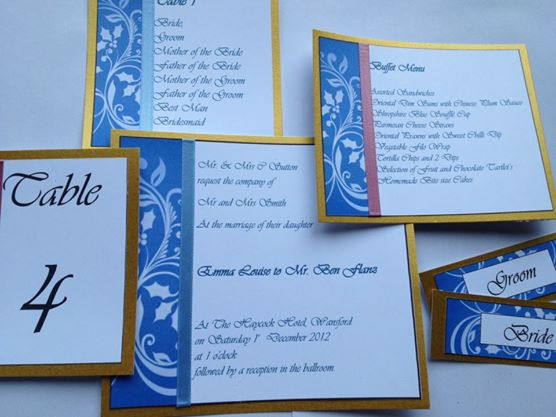 Table 1
Bride,
Groom
Mother of the Bride
Father of the Bride
Mother of the Groom
Father of the Groom
Best Man
Bridesmaid
Buffet Menu
Assorted Sandwiches
Oriental Dim Sums with Chinese Plum Sauce
Shropshire Blue Souffle Cup
Parmesan Cheese Straws
Oriental Prawns with Sweet Chilli Dip
Vegetable Filo Wrap
Tortilla Chips and 2 Dips
Selection of Fruit and Chocolate Tartlet's
Homemade Bite size Cakes
Table
4
Mr & Mrs C Sutton
request the company of
Mr and Mrs Smith
At the marriage of their daughter
Emma Louise to Mr Ben Flanz
At The Haycock Hotel, Wansford
on Saturday 1st December 2012
at 1 o'clock
followed by a reception in the ballroom.
Groom
Bride